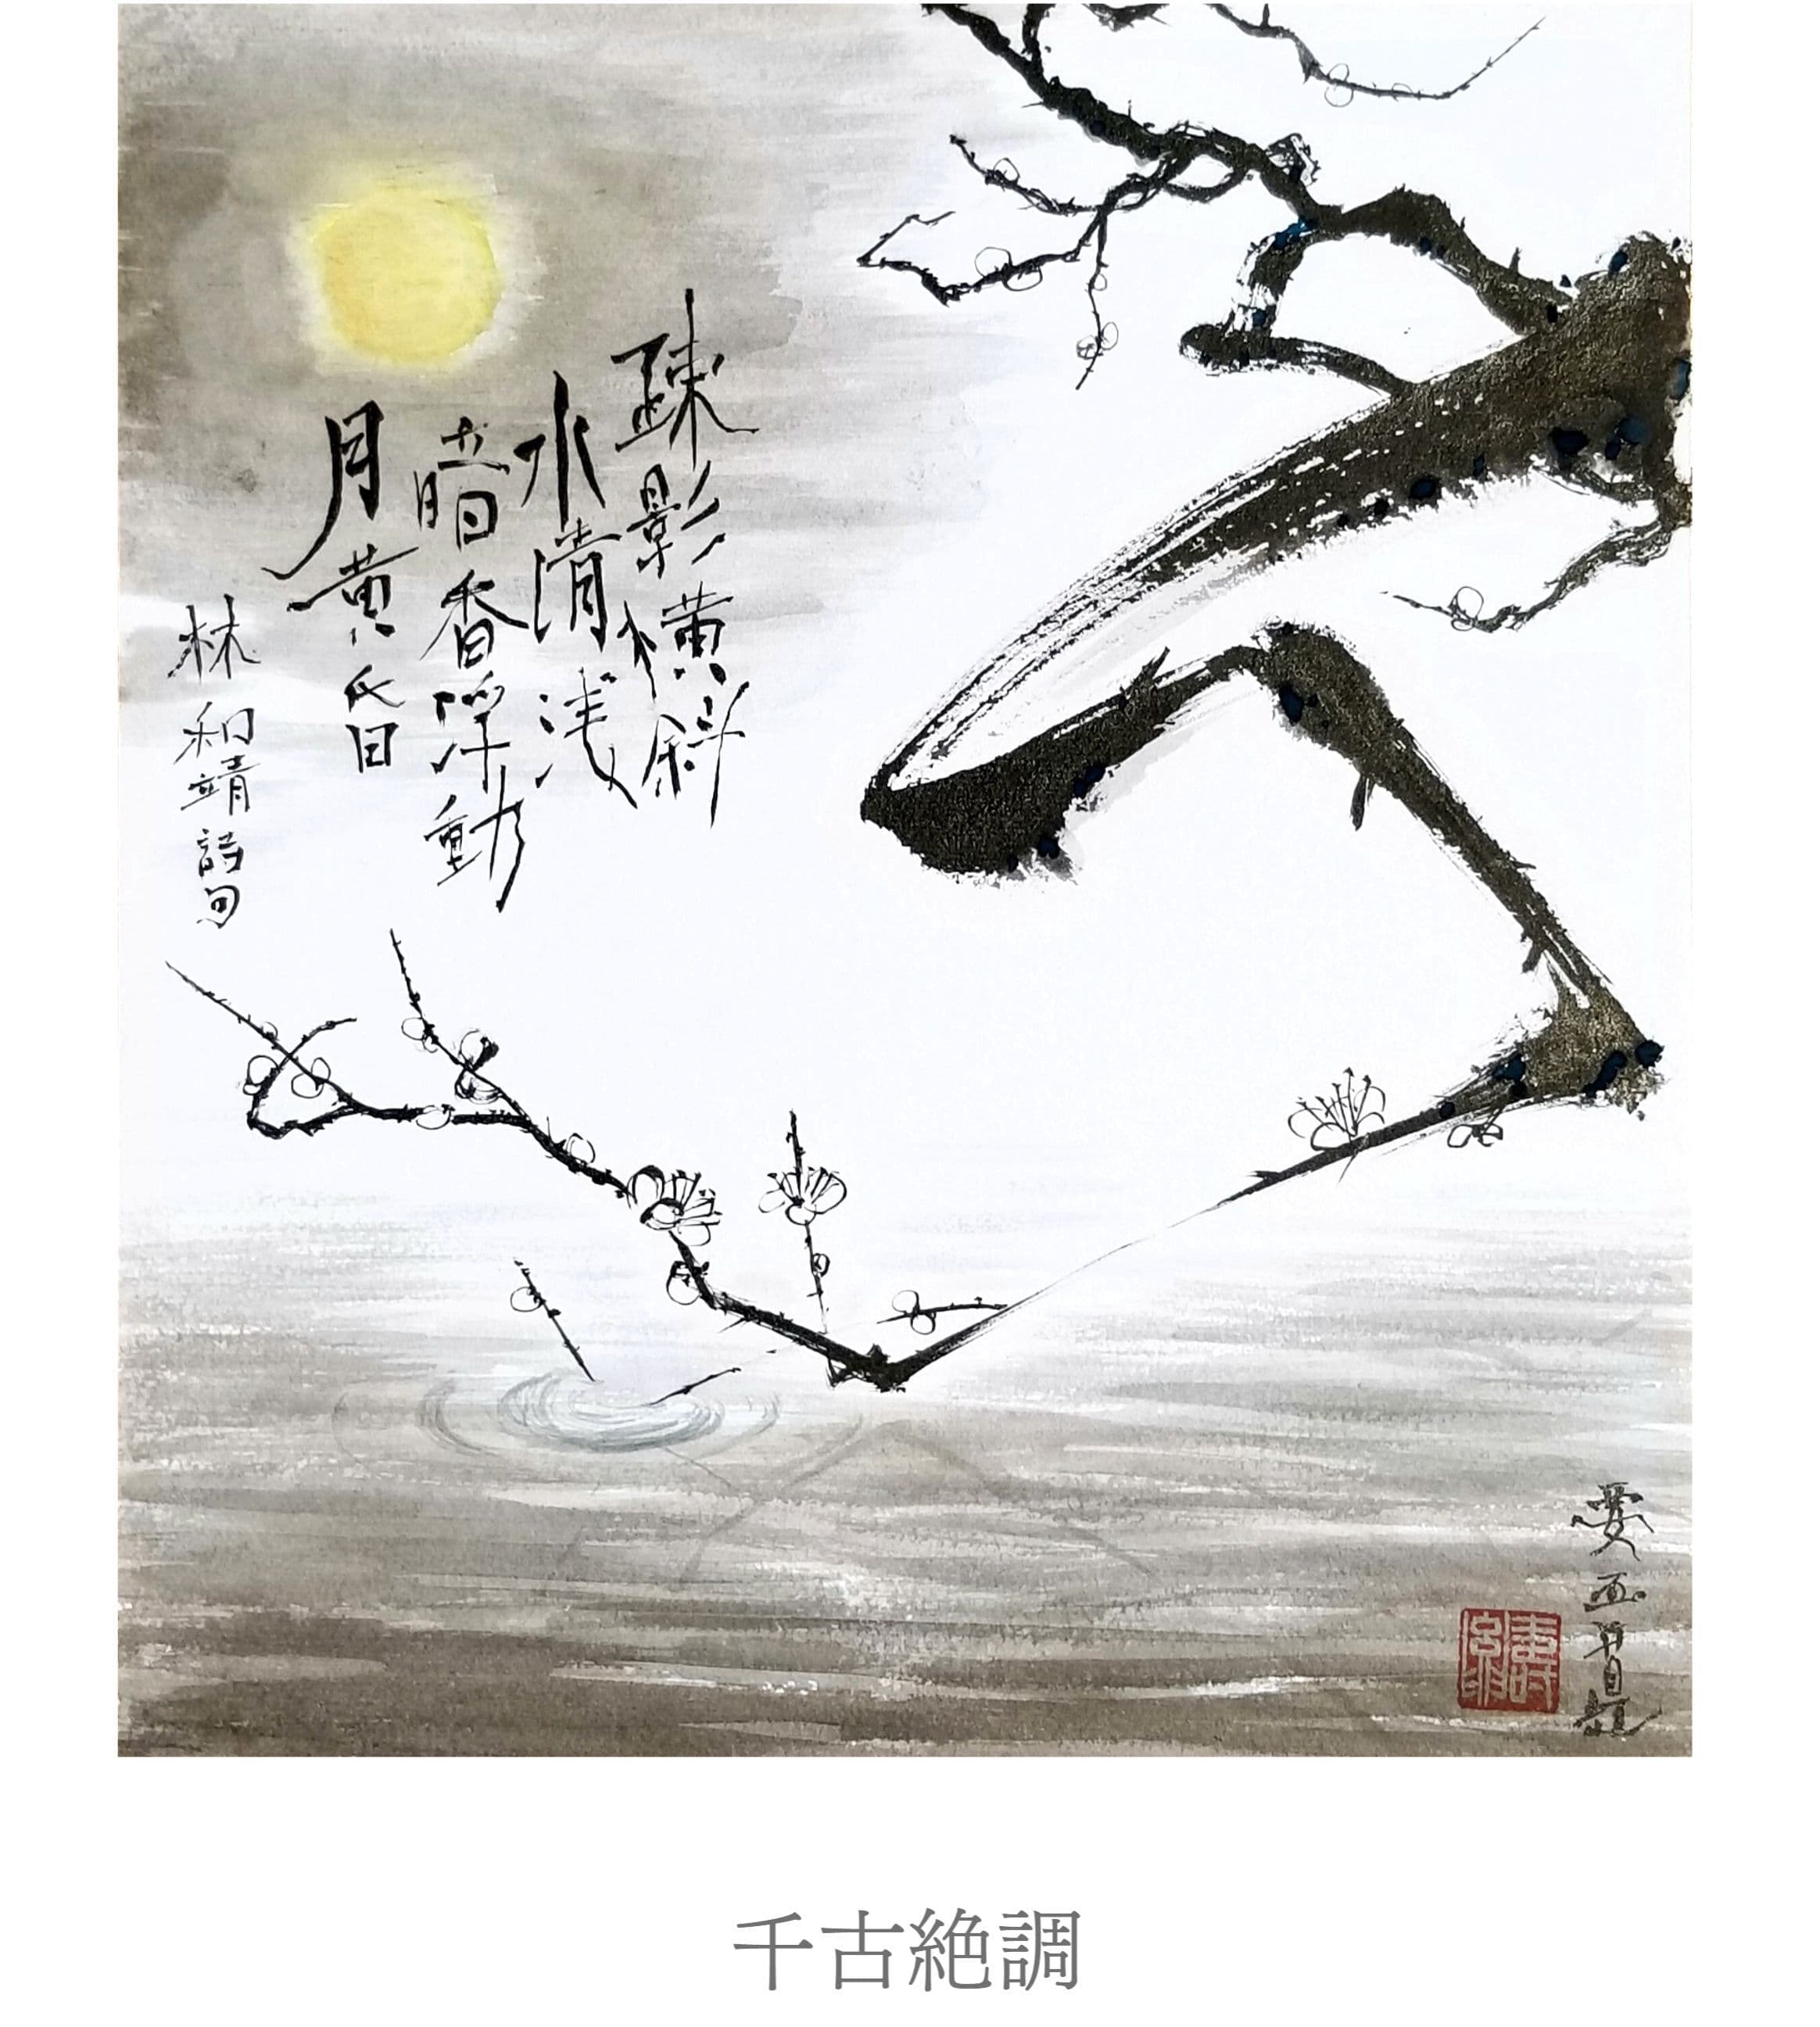 疎影橫斜
水清浅
暗香浮動
月黄昏
林和靖詩句
千古絶調